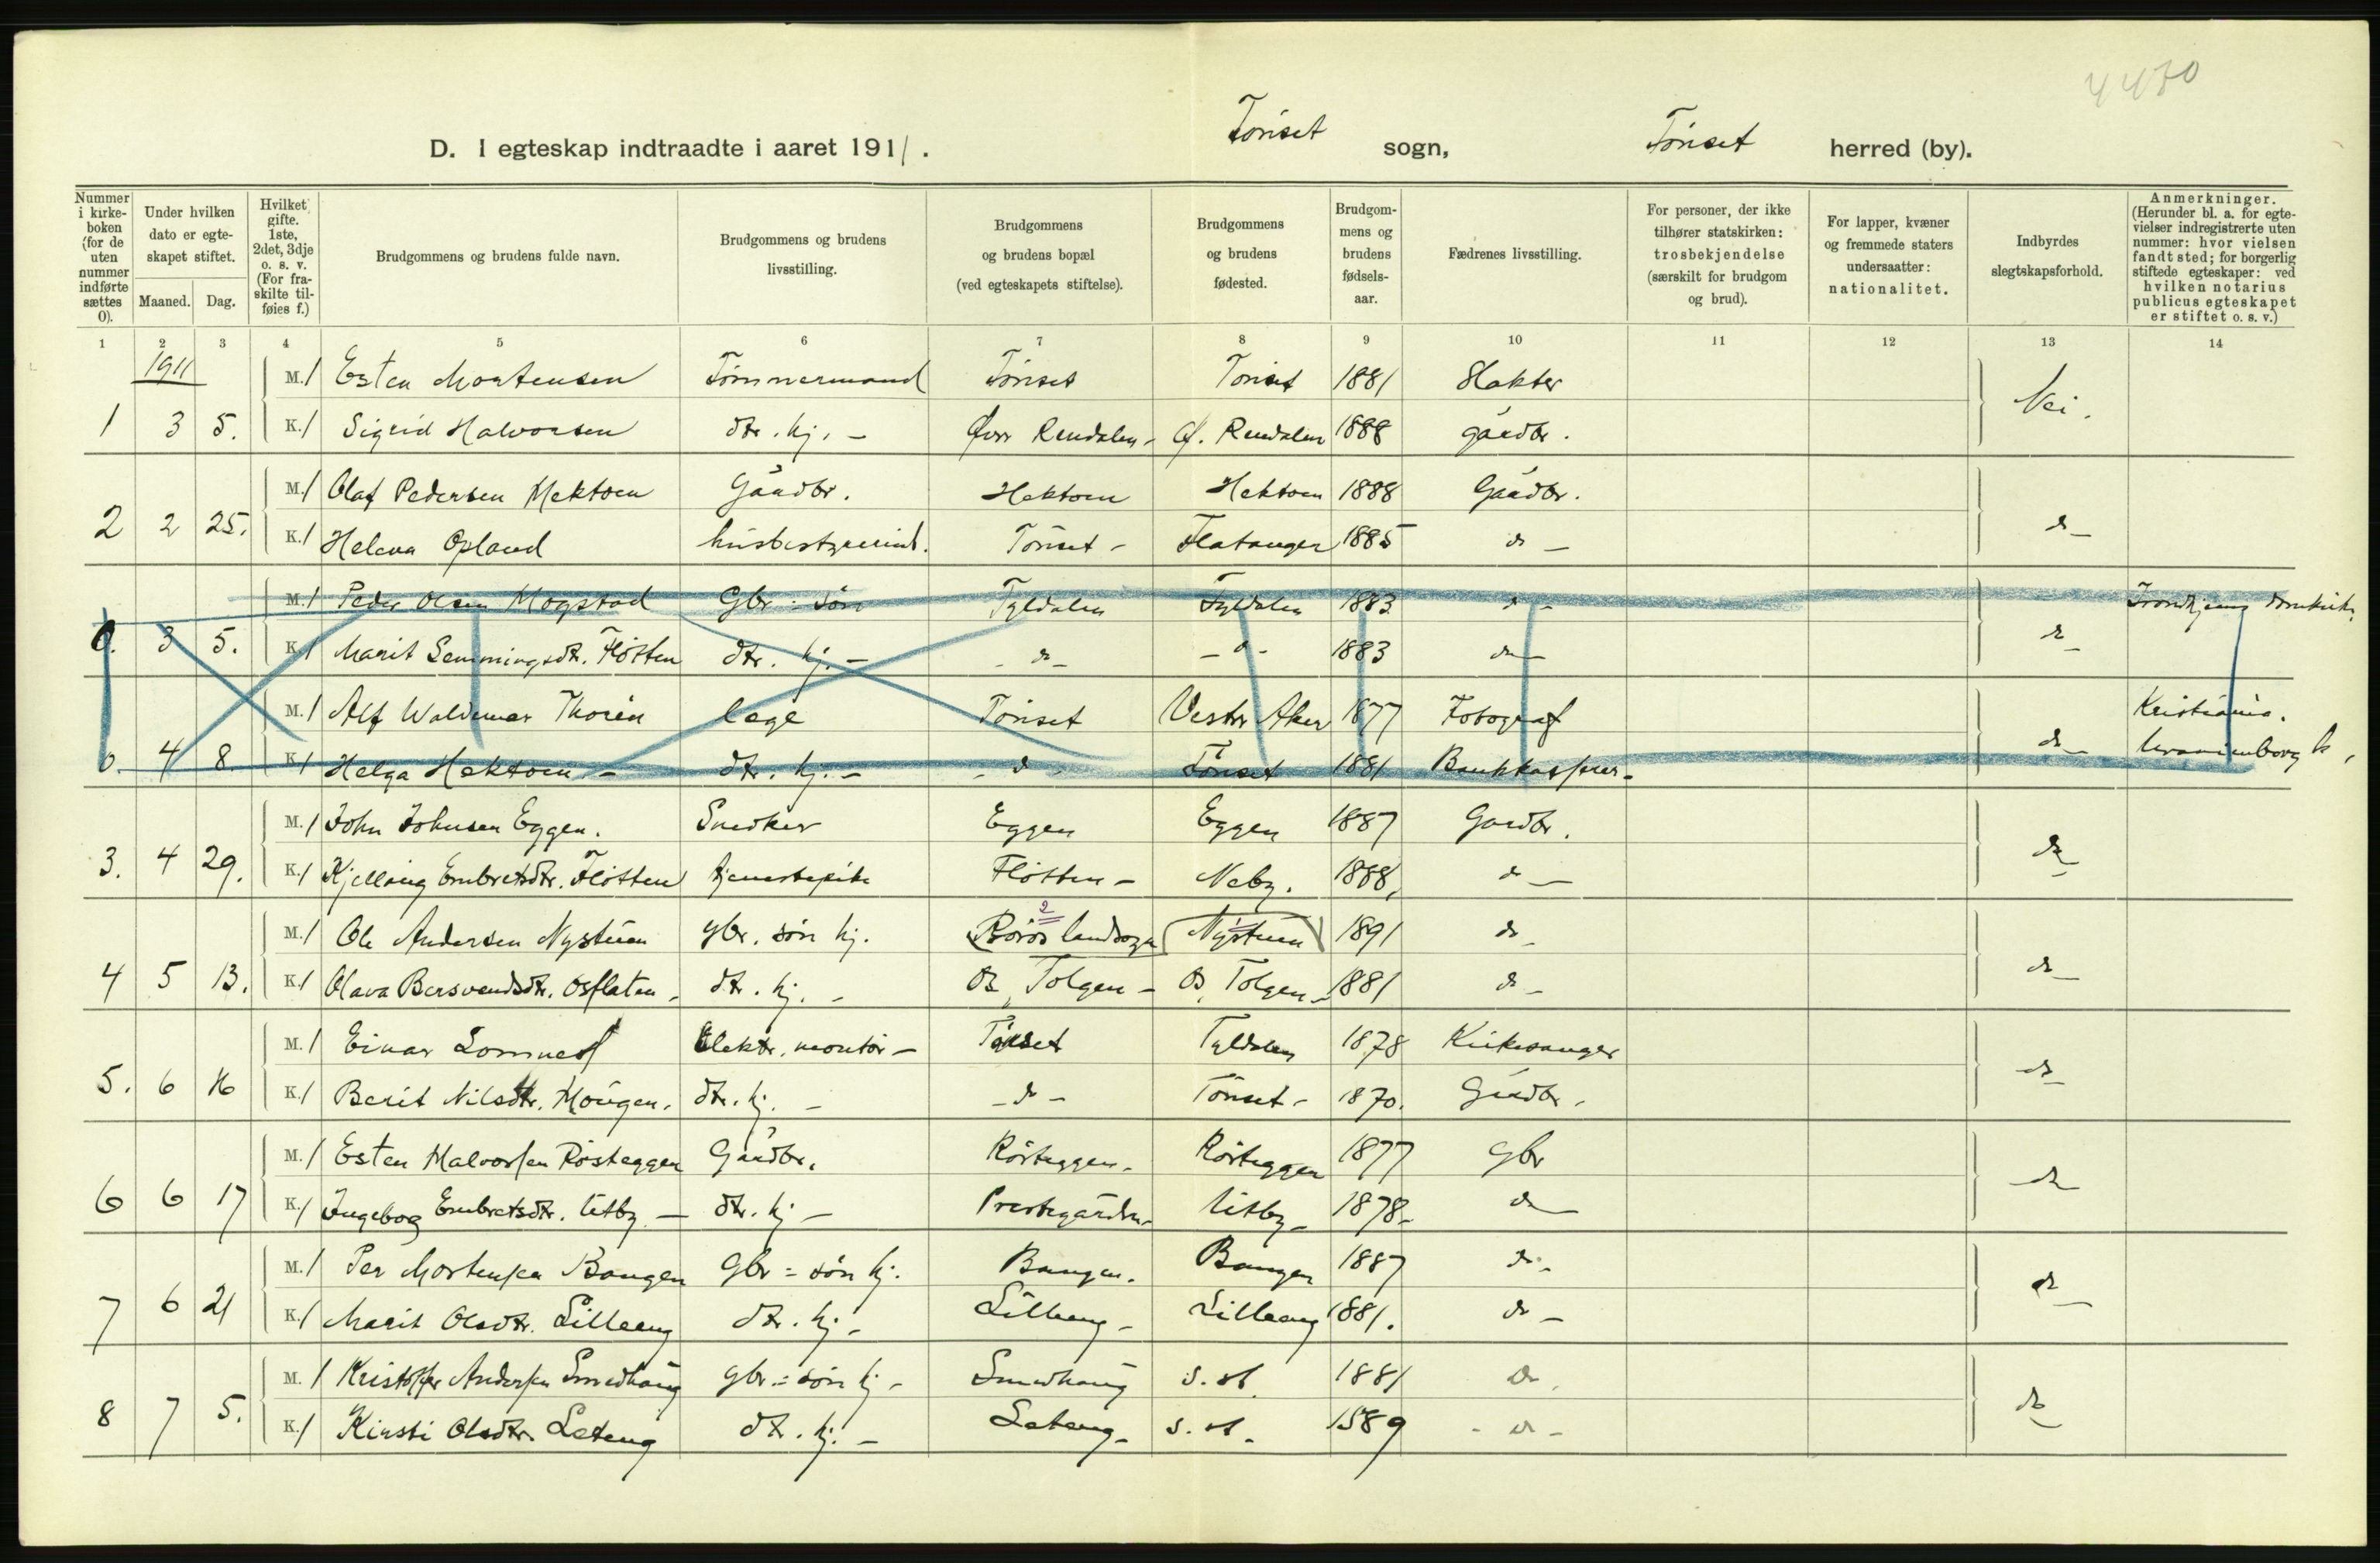 4430
D. I egteskap indtraadte i aaret 1911. Tønset sogn, Tønset herred (by).
Nummer i kirkeboken (for de uten nummer indførte sættes 0).
Under hvilken dato er egteskapet stiftet.
Maaned. Dag.
Hvilket gifte. 1ste, 2det, 3dje o. s. v. (For fraskilte tilføies f.)
Brudgommens og brudens fulde navn.
Brudgommens og brudens livsstilling.
Brudgommens og brudens bopæl (ved egteskapets stiftelse).
Brudgommens og brudens fødested.
Brudgommens og brudens fødselsaar.
Fædrenes livsstilling.
For personer, der ikke tilhører statskirken: trosbekjendelse (særskilt for brudgom og brud).
For lapper, kvæner og fremmede staters undersaatter: nationalitet.
Indbyrdes slegtskapsforhold.
Anmerkninger. (Herunder bl. a. for egtevielser indregistrerte uten nummer: hvor vielsen fandt sted; for borgerlig stiftede egteskaper: ved hvilken notarius publicus egteskapet er stiftet o. s. v.)
1 2 3 4 5 6 7 8 9 10 11 12 13 14
1911
M. 1 Esten Mortensen Tømmermand Tønset Tønset 1881 Slakter Nei.
1 3 5. K. 1 Sigrid Halvorsen dtr. hj. - Øvre Rendalen - Ø. Rendalen 1888 gaardbr.
M. 1 Olaf Pedersen Hektoen Gaardbr. Hektoen Hektoen 1888 Gaardbr.
2 2 25. K. 1 Helena Opland husbestyrerind. Tønset - Flatanger 1885 do - do -
M. 1 Peder Olsen Mogstad Gbr = søn Tyldalen Tyldalen 1883 do - Trondhjems domkirke
0. 3 5. K. 1 Marit Semmingsdtr. Fløtten dtr. hj. - - do - - do - 1883 do - do -
M. 1 Alf Waldemar Thorén læge Tønset Vestre Aker 1877 Fotograf Kristiania.
0. 4 8. K. 1 Helga Hektoen - dtr. hj. - - do - Tønset 1881 Bankkasserer - do - Uranienborg k.
M. 1 John Johnsen Eggen. Snedker Eggen Eggen 1887 Gardbr.
3. 4 29. K. 1 Kjellaug Embretsdtr. Fløtten tjenestepike Fløtten - Neby. 1888, do - do -
2
M. 1 Ole Andersen Nystuen gbr. søn hj. (Røros landsogn (Nystuen) 1891 do -
4 5 13. K. 1 Olava Bersvendsdtr. Osflaten - dtr. hj. - Os, Tolgen - Os, Tolgen - 1881 do - do -
M. 1 Einar Lomnes Elektr. montør - Tønset Tyldalen 1878 Kirkesanger
5. 6 16 K. 1 Berit Nilsdtr. Haugen. dtr. hj. - - do - Tønset - 1870. Gaardbr. do -
M. 1 Esten Halvorsen Røsteggen Gaardbr. Røsteggen - Røsteggen 1877 Gbr
6 6 17 K. 1 Ingebog Embretsdtr. Utby - dtr. hj - Prestegården - Utby - 1878 - do - do -
M. 1 Per Mortensen Bangen Gbr = søn hj. Bangen. Bangen 1887 do -
7 6 21 K. 1 Marit Olsdtr. Lilleeng dtr. hj - Lilleeng - Lilleeng 1881. do - do -
M. 1 Kristoffer Andersen Smedhaug gbr. = søn hj - Smedhaug s. st. 1881 do.
8 7 5. K. 1 Kirsti Olsdtr. Leteng dtr. hj. - Leteng - s. st. - 1889 - do - do